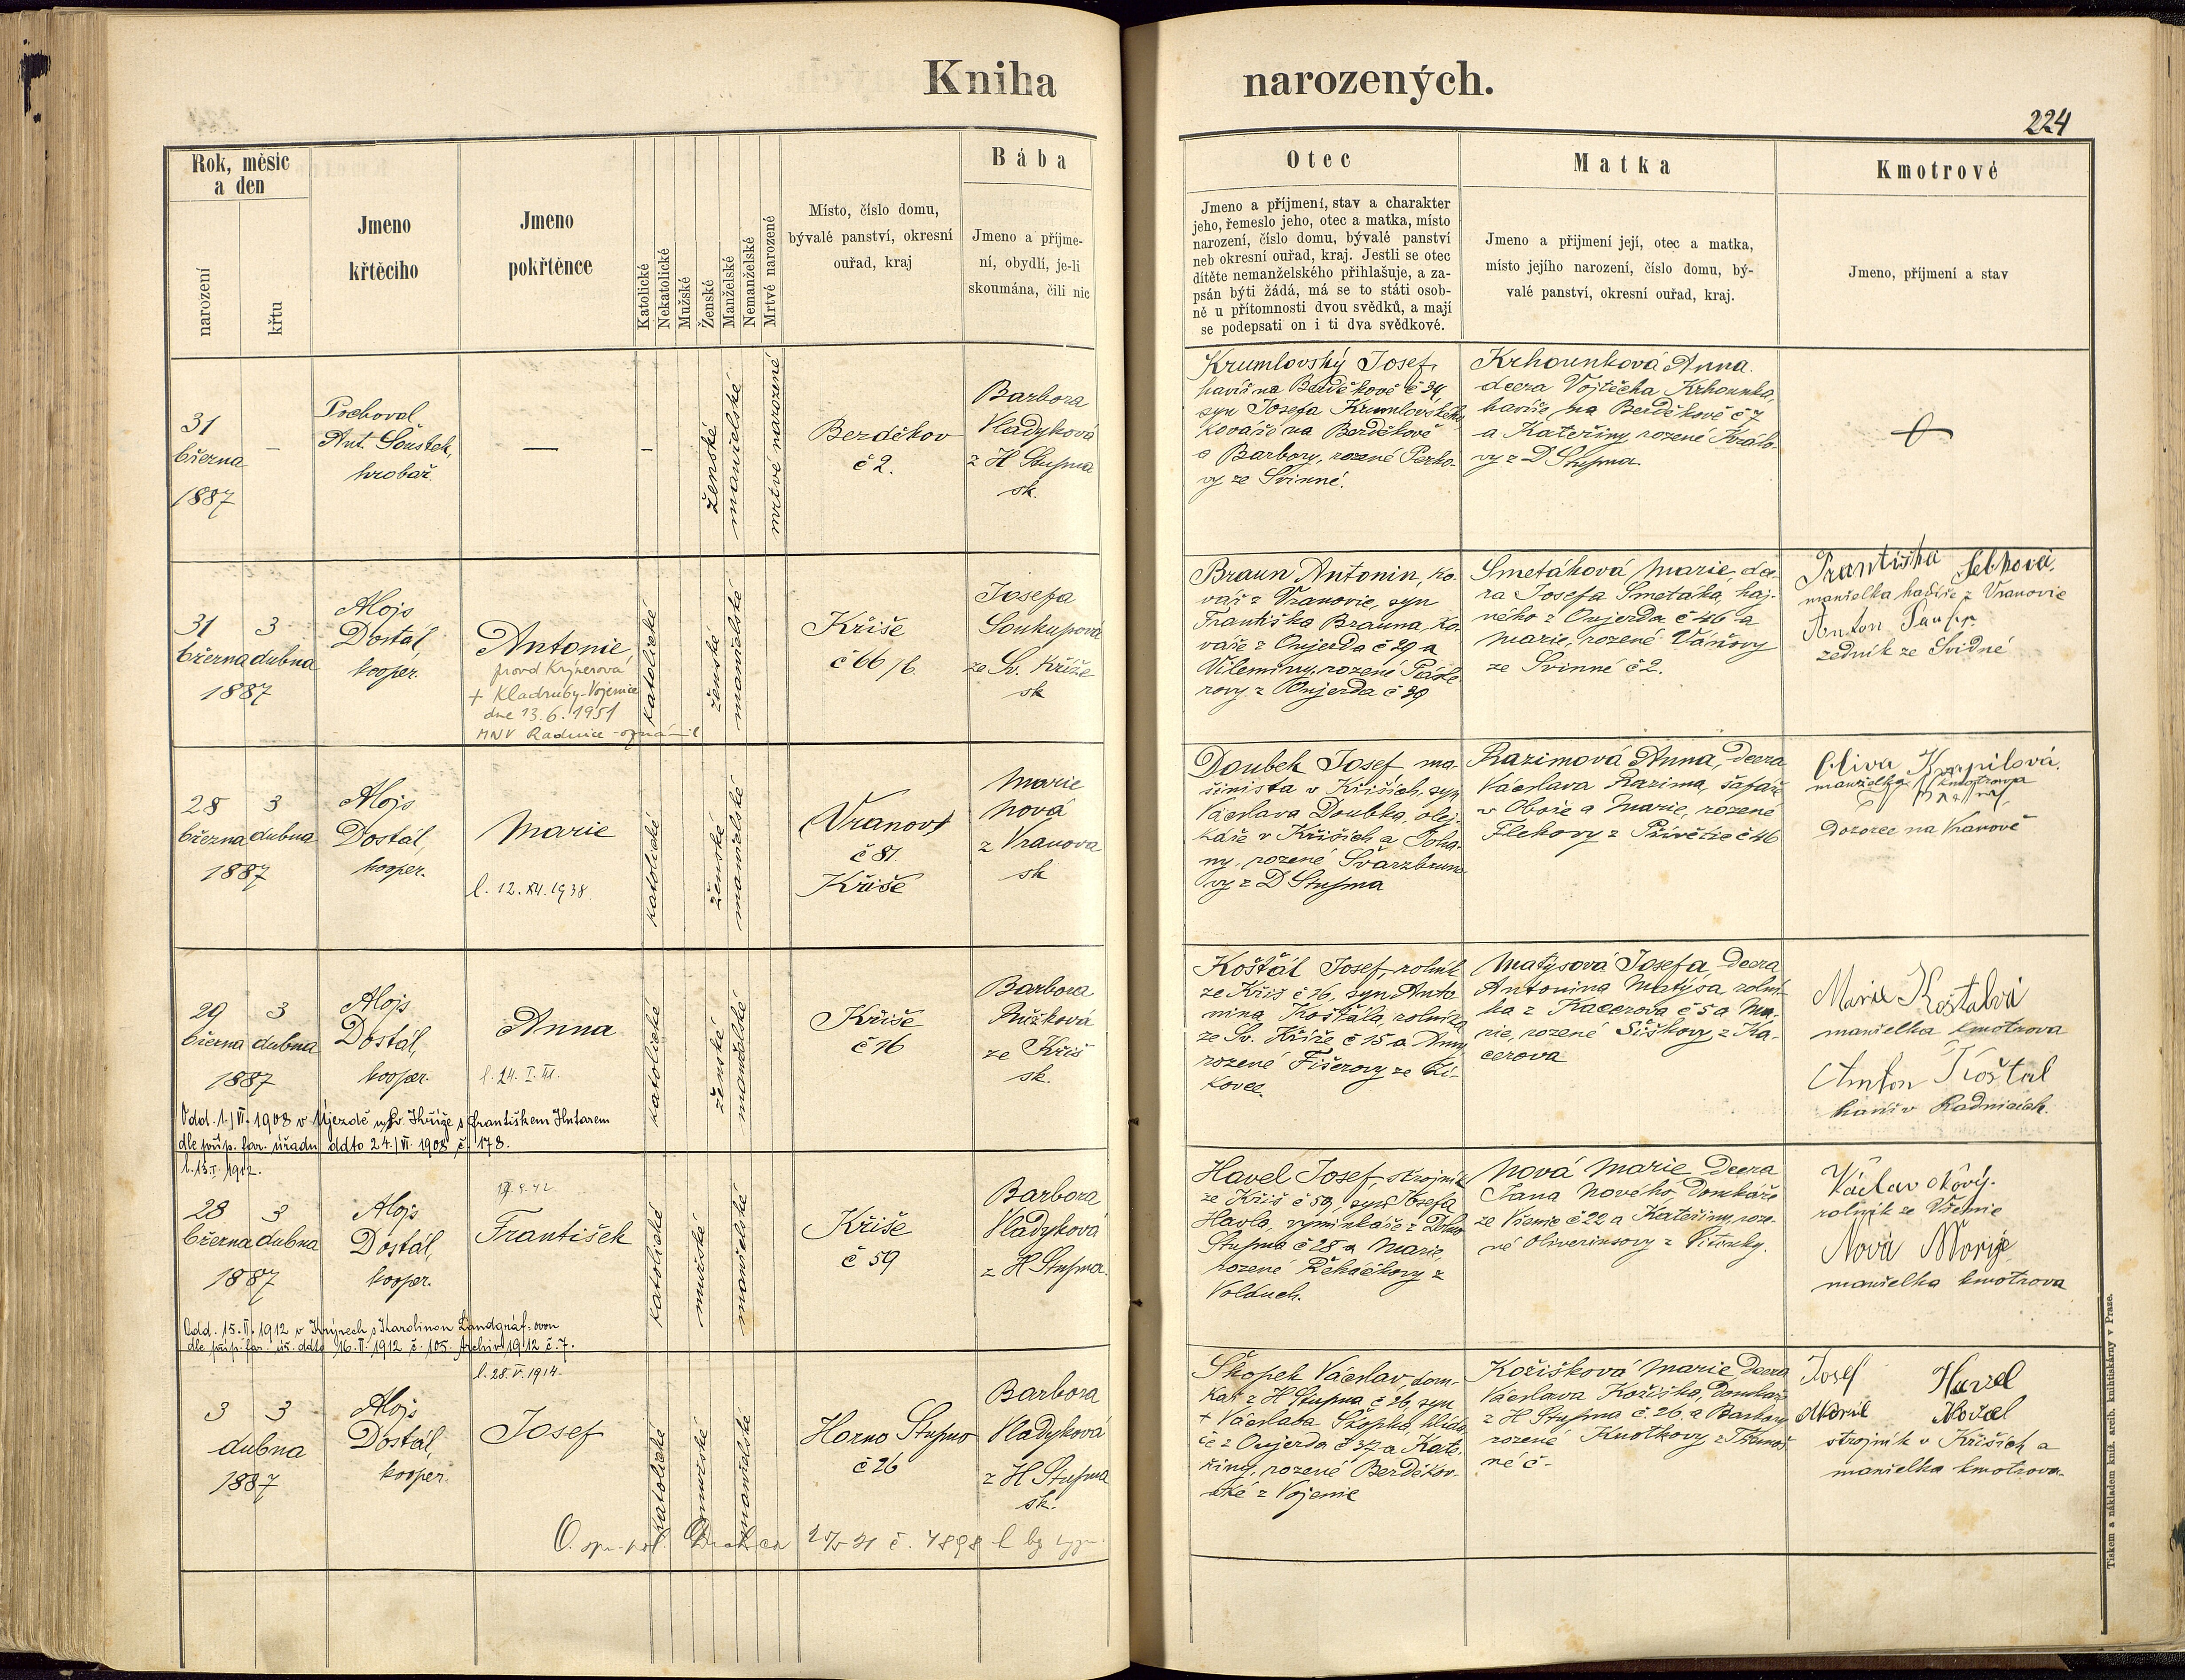 Kniha narozených.
224
Rok, měsíc
a den
narození
křtu
Jmeno
křtěcího
Jmeno
pokřtěnce
Katolické
Nekatolické
Mužské
Ženské
Manželské
Nemanželské
Mrtvé narozené
Místo, číslo domu,
bývalé panství, okresní
ouřad, kraj
Bába
Jmeno a příjme-
ní, obydlí, je-li
skoumána, čili nic
Otec
Jmeno a příjmení, stav a charakter
jeho, řemeslo jeho, otec a matka, místo
narození, číslo domu, bývalé panství
neb okresní ouřad, kraj. Jestli se otec
dítěte nemanželského přihlašuje, a za-
psán býti žádá, má se to státi osob-
ně u přítomnosti dvou svědků, a mají
se podepsati on i ti dva svědkové.
Matka
Jmeno a přijmení její, otec a matka,
místo jejího narození, číslo domu, bý-
valé panství, okresní ouřad, kraj.
Kmotrové
Jmeno, příjmení a stav
31
března
1887
—
Pochoval
Ant. Šoustek,
hrobař.
—
—
ženské
manželské
mrtvé narozené
Bezděkov
č 2.
Barbora
Vladyková
z H Stupna
sk.
Krumlovský Josef,
havíř na Bezděkově č 34,
syn Josefa Krumlovského
kováře na Bezděkově
a Barbory, rozené
vy ze Svinné.
Krhounková Anna.
dcera Vojtěcha Krhounka,
havíře na Bezděkově č 7
a Kateřiny rozené Králo-
vy z D Stupna.
31 3
března dubna
1887
Alojs
Dostál,
kooper.
Antonie,
provd Krýnerová
+ Kladruby-Vojenice
dne 13.6.1951
MNV Radnice - oznámil
katolické
ženské
manželské
Kříše
č 66/6
Josefa
Soukupová
ze Sv. Kříže
sk
Braun Antonin, ko-
vář z Vranovic, syn
Františka Brauna, ko-
váře z Oujezda č 29 a
Vileminy, rozené
rovy z Oujezda č 39
Smetáková Marie, dce-
ra Josefa Smetáka, haj-
ného z Oujezda č 46 a
Marie, rozené Váňovy
ze Svinné č 2.
Františka
manželka havíře z Vranovic
Anton
zedník ze Svidné
28 3
března dubna
1887
Alojs
Dostál,
kooper.
Marie
l. 12. XII. 1938.
katolické
ženské
manželské
Vranov
č 81
Kříše
Marie
Nová
z Vranova
sk
Doubek Josef ma-
šinista v Kříších, syn
Václava Doubka, olej-
káře v Kříších a Joha-
ny, rozené Švarzbrun-
vy z D Stupna
Razimová Anna, dcera
Václava Razima, šafáře
v Oboře a Marie, rozené
Flekovy z Přívětic č 46
Oliva
manželka kmotrova
Dozorce na Vranově
29 3
března dubna
1887
Alojs
Dostál,
kooper.
Anna
katolické
ženské
manželské
Kříše
č 16
Barbora
Růžková
ze Kříš
sk.
Koštál Josef, rolník
ze Kříš č 16, syn Anto-
nina Koštála, rolníka
ze Sv. Kříže č 15 a Anny
rozené Fišerovy ze Zi-
kovce.
Matýsová Josefa, dcera
Antonina Matýsa rolní-
ka z Kacerova č 5 a Ma-
rie, rozené Šiškovy z Ka-
cerova
Marie Koštalová
manželka kmotrova
Anton Koštal
havíř v Radnicích.
Odd. 1./VI. 1908 v Újezdě u Sv. Kříže s Františkem Hutarem
dle příp. far. úřadu ddto 24./VI. 1908 č. 178.
l. 13.I.1912.
28 3
března dubna
1887
Alojs
Dostál,
kooper.
František
katolické
mužské
manželské
Kříše
č 59
Barbora
Vladyková
z H Stupna.
Havel Josef, strojník
ze Kříš č 59, syn Josefa
Havla, výminkáře z Dolno
Stupna č 28 a Marie,
rozené Řeháčkovy z
Volduch.
Nová Marie, dcera
Jana Nového, domkáře
ze Všenic č 22 a Kateřiny, roze-
né Oliverinsovy z Vitinky.
Václav Nový.
rolník ze Všenic
Nová Marie
manželka kmotrova
Odd. 15.II.1912 v Krýrech s Karolinou Landgráf-ovou
dle příp. far. úř. ddto 16.II.1912 č. 105. Archiv 1912 č. 7.
l. 28.V.1914.
3 3
dubna
1887
Alojs
Dostál,
kooper.
Josef
katolické
mužské
manželské
Horno Stupno
č 26
Barbora
Vladyková
z H Stupna
sk.
Škopek Václav, dom-
kář z H Stupna č 26, syn
+ Václava Škopka, hlída-
če z Oujezda č 37 a Kate-
řiny, rozené Bezděkov-
ské z Vojenic
Kožíšková Marie, dcera
Václava Kožíška, domkáře
z H Stupna č. 26. a Barbory
rozené Knotkovy z Těnov-
né č -
Josef Havel
Marie Havel
strojník v Kříších a
manželka kmotrova.
Tiskem a nákladem kníž. arcib. knihtiskárny v Praze.